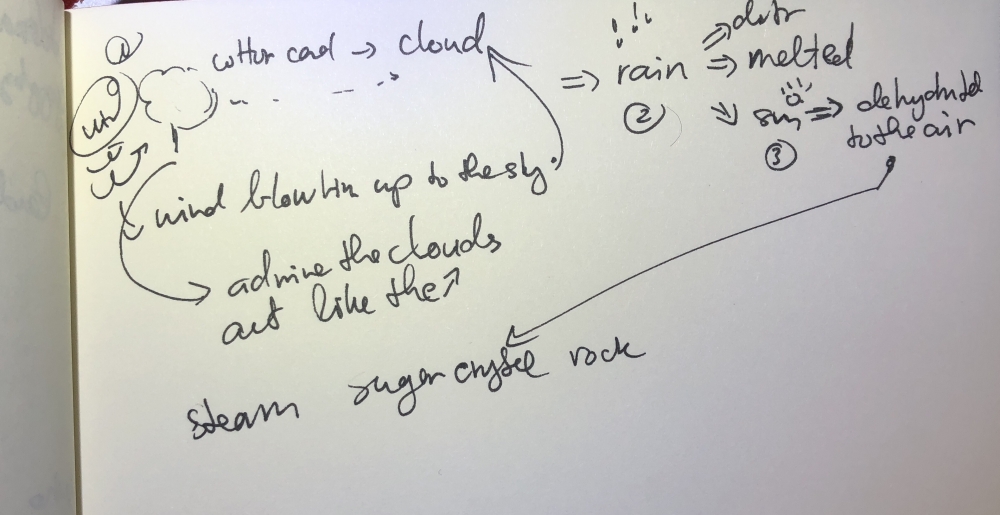 ①
cotton cand → cloud
⇒ rain ⇒ melted
②
sun ⇒ dehydrated
to the air
③
wind blow him up to the sky.
admire the clouds
act like the
steam sugar crystel rock